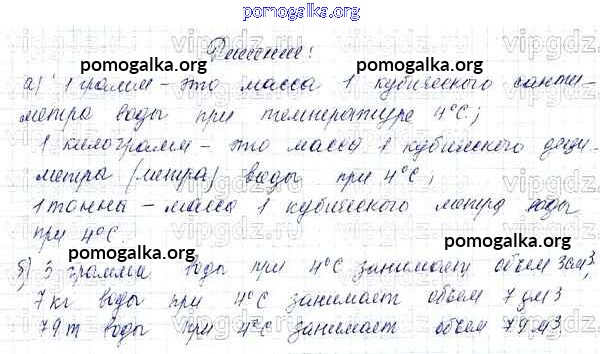 pomogalka.org
Решение:
а) 1 грамм – это масса 1 кубического санти-
метра воды при температуре 4°С;
1 килограмм – это масса 1 кубического деци-
метра (литра) воды при 4°С;
1 тонна – масса 1 кубического метра воды
при 4°С.
pomogalka.org
б) 3 грамма воды при 4°С занимает объем 3см³,
7 кг воды при 4°С занимает объем 7 дм3
79 т воды при 4°С занимает объем 79 м3,
pomogalka.org